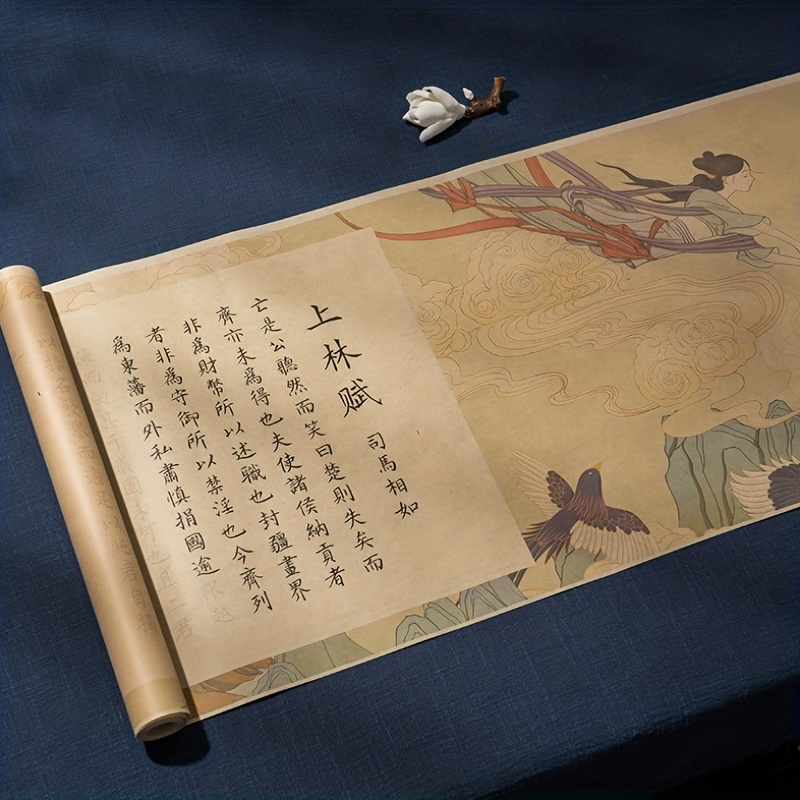 上林赋
司馬相如
亡是公聽然而笑曰楚則失矣而
齊亦未為得也夫使諸侯納貢者
非為財幣所以述職也封疆畫界
者非為守御所以禁淫也今齊列
為東藩而外私肅慎捐國逾限越
也且二君